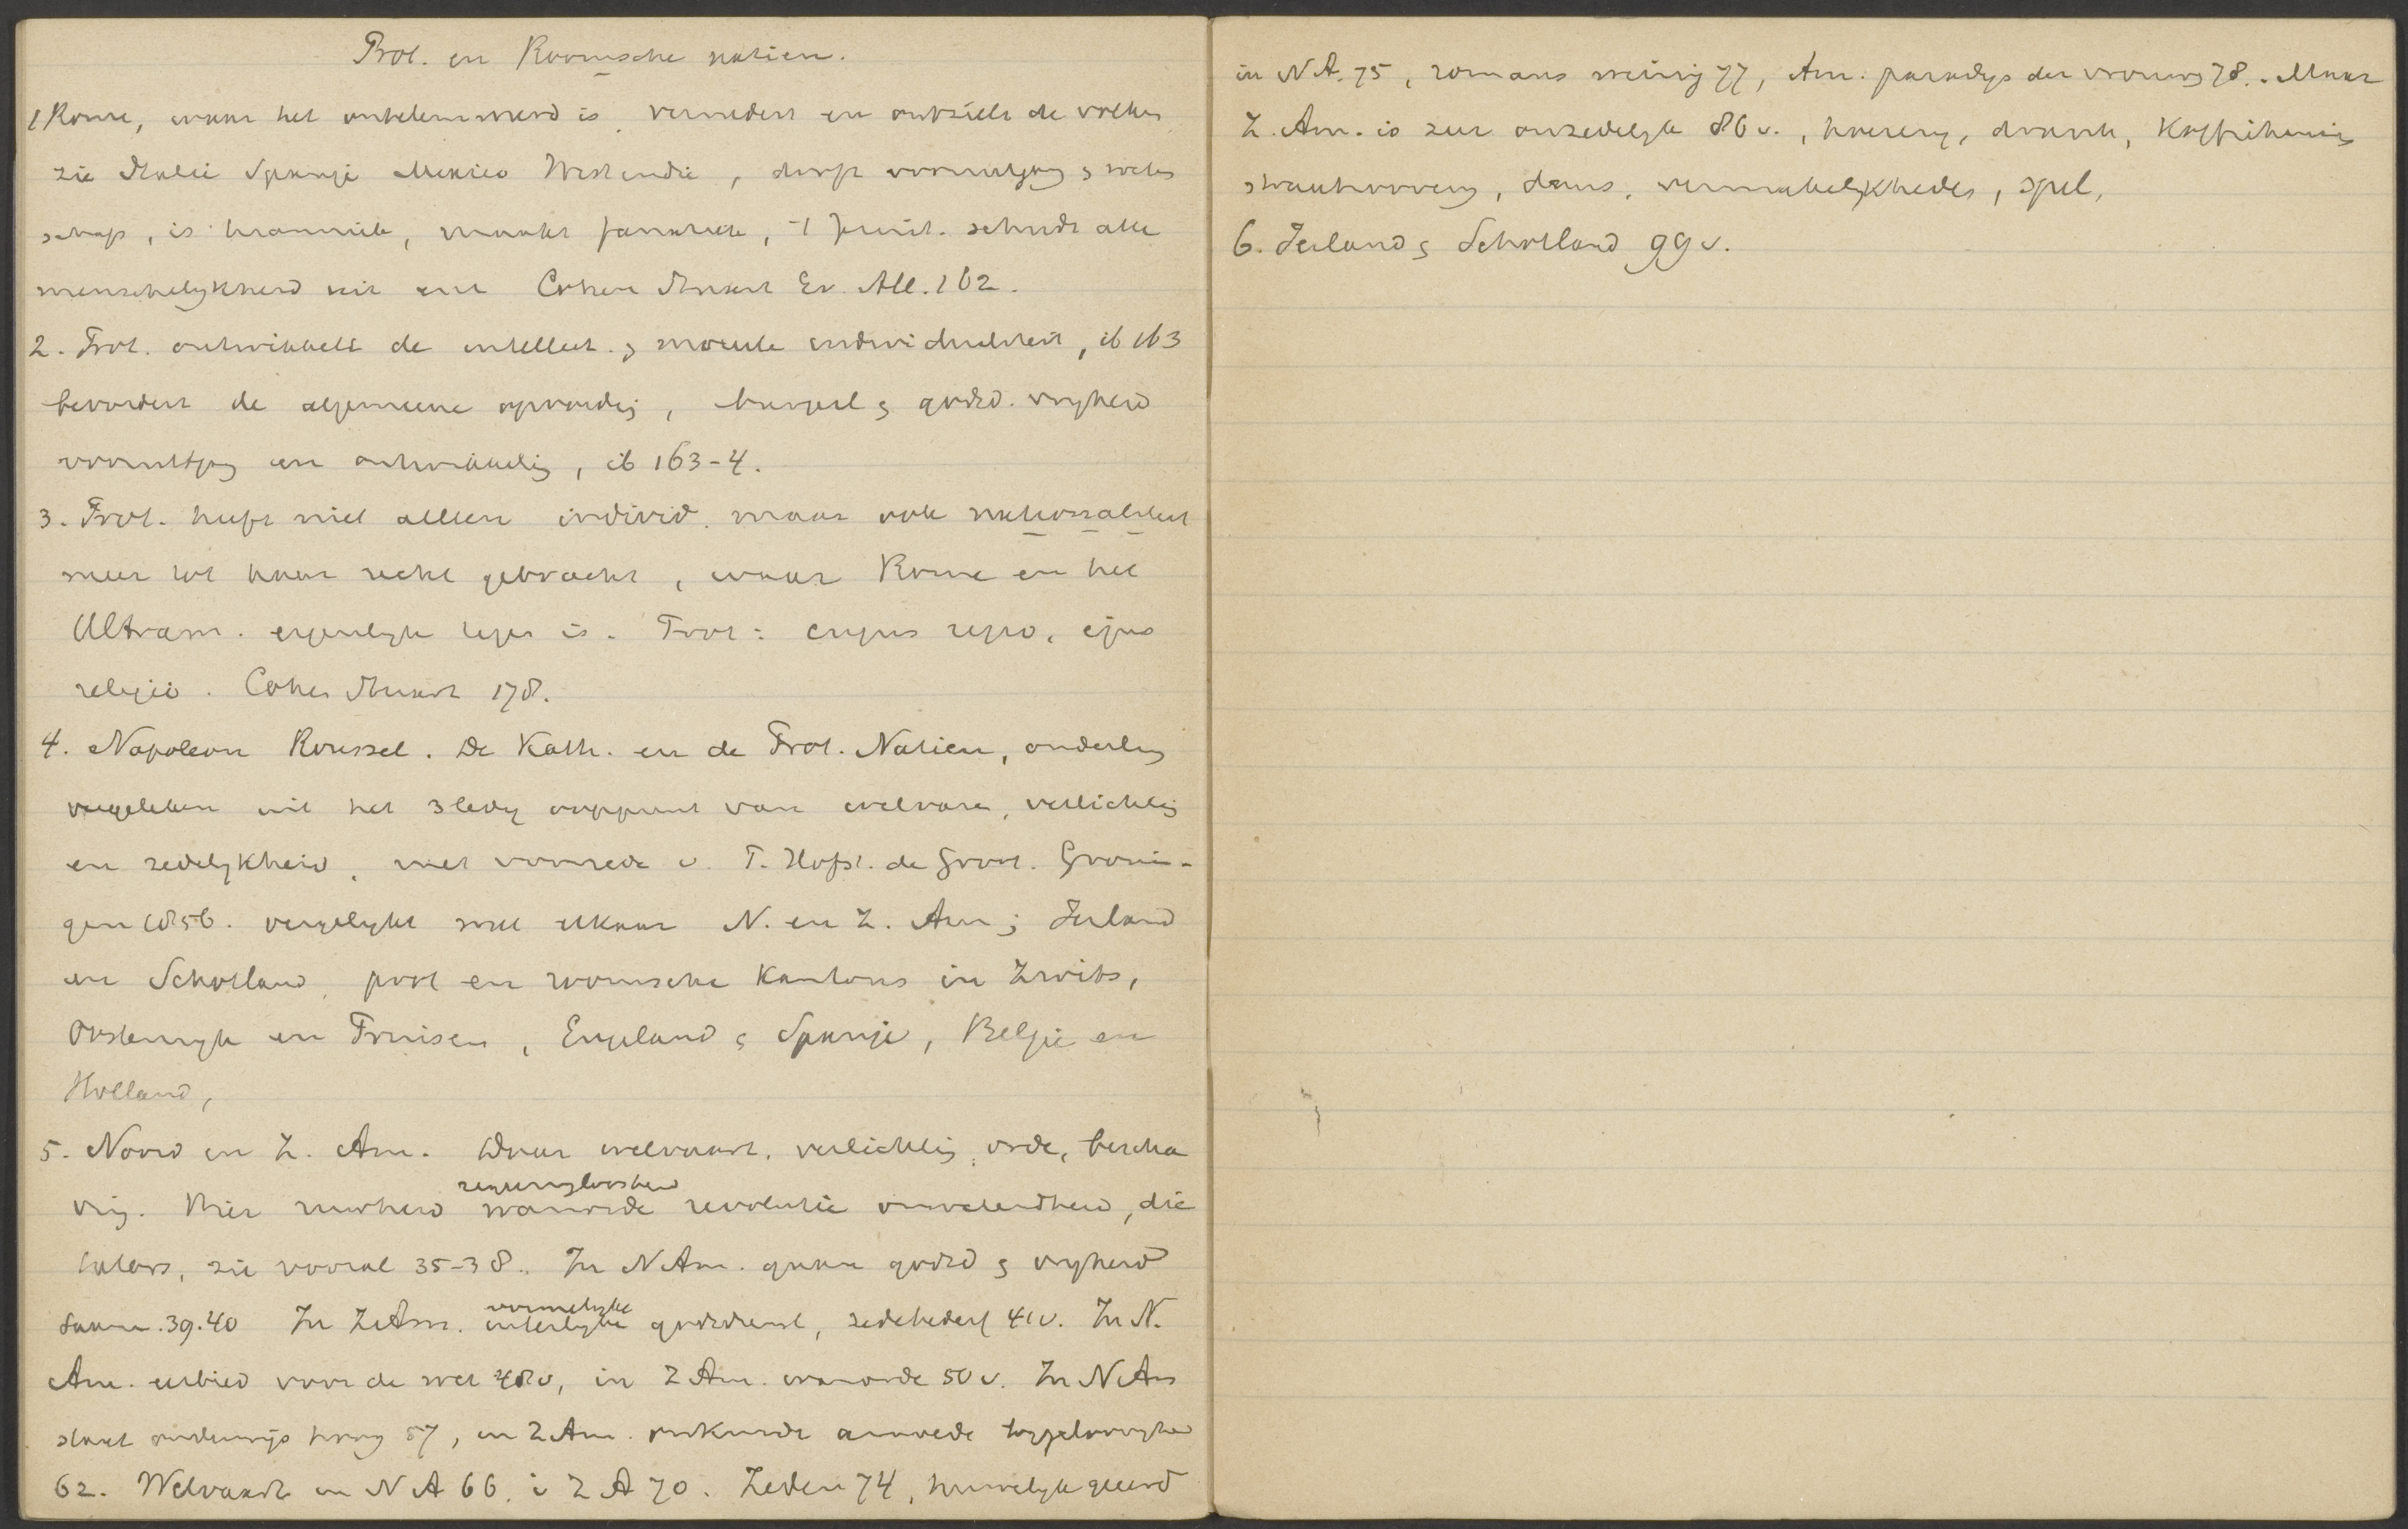 Prot. en Roomsche natien.
1 Rome, waar het onbelemmerd is, vernedert en ontzielt de volken
zie Italie Spanje Mexico West indie, dooft vooruitgang & weten
schap, is tirannick, maakt fanatiek, schudt alle
menschelykheid uit enz Cohen Stuart Ev. All. 162.
2. Prot. ontwikkelt de intellect. & moreele individualiteit, ib 163
bevordert de algemeene opvoeding, burgerl & godsd. vryheid
vooruitgang en ontwikkeling, ib 163-4.
3. Prot. heeft niet alleen individ. maar ook nationaliteit
meer tot haar recht gebracht, waar Rome en het
Ultram. eigenlyk tegen is. Prot: cujus regio, ejus
religio. Cohen Stuart 178.
4. Napoleon Roussel. De Kath. en de Prot. Natien, onderling
vergeleken uit het 3ledig oogpunt van welvaren, verlichting
en zedelykheid, met voorrede v. P. Hofst. de Groot. Gronin-
gen 1856. vergelykt met elkaar N. en Z. Am; Ierland
en Schotland, prot en roomsche Kantons in Zwits,
Oostenryk en Pruisen, Engeland & Spanje, Belgie en
Holland,
5. Noord en Z. Am. Daar welvaart, verlichting, orde, bescha
ving. Hier ruwheid regeeringloosheid wanorde revolutie onwetendheid, die
tators, zie vooral 35-38. In N Am. gaan godsd & vryheid
samen. 39.40 In Z Am. vormelyke uiterlyke godsdienst, zedebederf 41v. In N.
Am. eerbied voor de wet 48v, in Z Am. wanorde 50v. In N Am
staat onderwys hoog 57, in Z Am. onkunde armoede bygeloovigheid
62. Welvaart in N A 66, i Z A 70. Zeden 74, huwelyk geeerd
in N A. 75, romans weinig 77, Am. paradys der vrouwen 78. Maar
Z. Am. is zeer onzedelyk 86 v., hoerery, drank, Koffiehuis
straatroovery, dans, vermakelykheden, spel,
6. Ierland & Schotland 99 v.